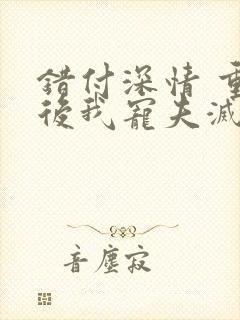 错付深情 重
後我寵夫滅
音塵寂